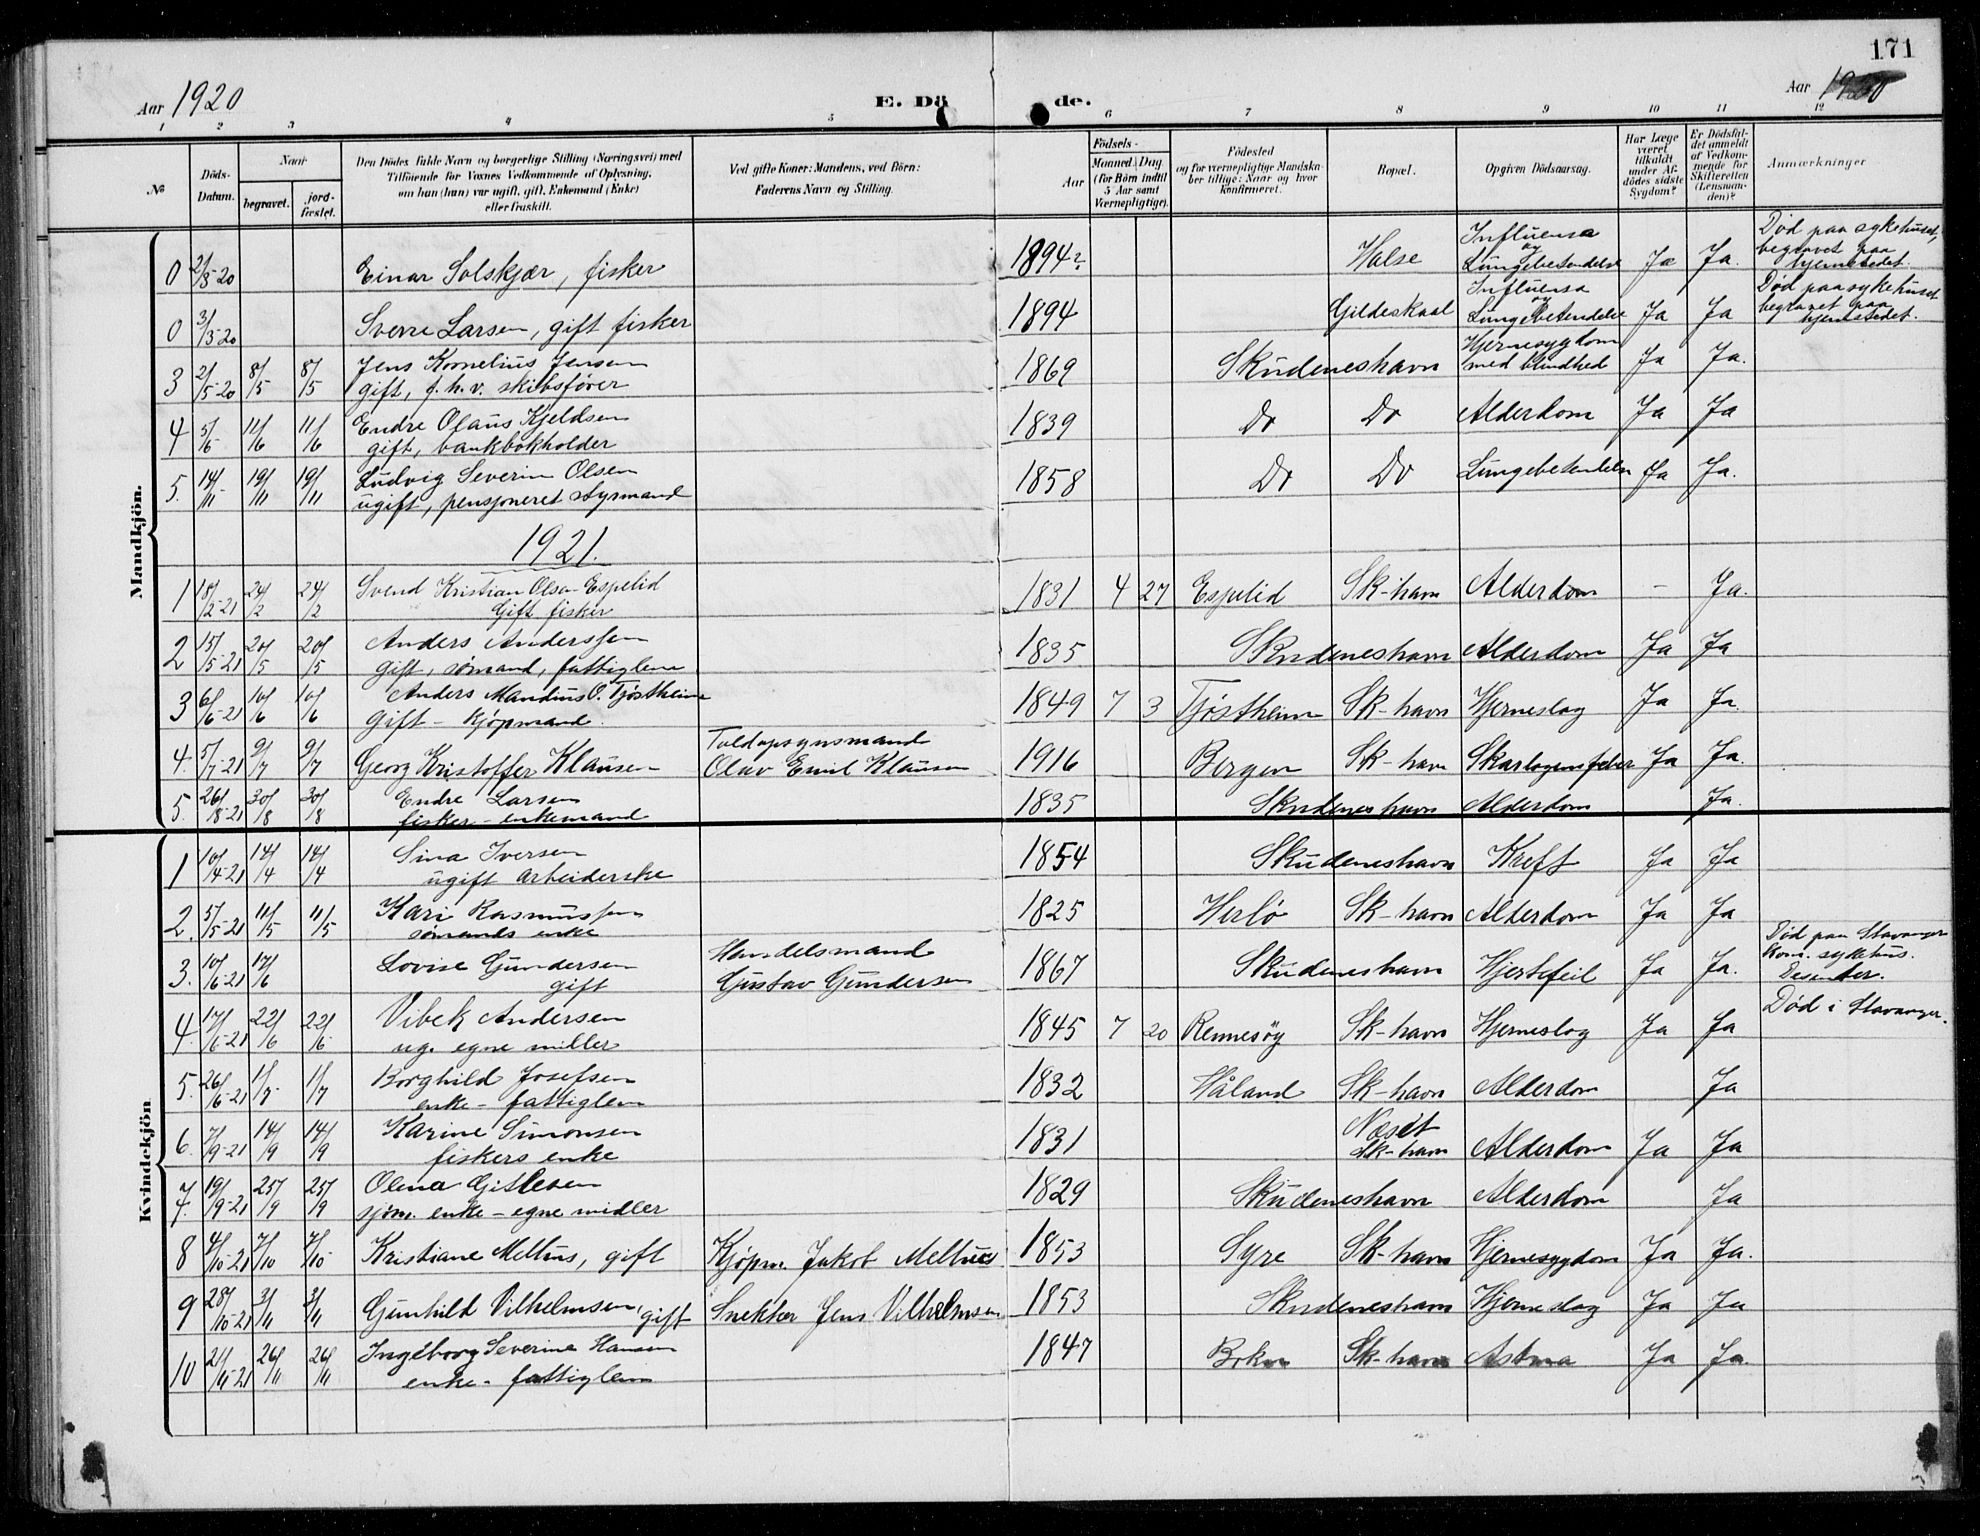 171
Aar 1920
E. Dö de.
Aar 1920
1 2 3 4 5 6 7 8 9 10 11 12
№
Döds-Datum.
Naar
begravet.
jord-fæstet.
Den Dödes fulde Navn og borgerlige Stilling (Næringsvei) med
Tilföiende for Voxnes Vedkommende af Oplysning,
om han (hun) var ugift, gift, Enkemand (Enke)
eller fraskilt.
Ved gifte Koner: Mandens, ved Börn:
Faderens Navn og Stilling.
Födsels-
Aar
Maaned. Dag.
(for Börn indtil
5 Aar samt
Værnepligtige).
Födested
og for værnepligtige Mandska-
ber tillige: Naar og hvor
konfirmeret.
Bopæl.
Opgiven Dödsaarsag.
Har Læge
været
tilkaldt
under Af-
dödes sidste
Sygdom?
Er Dödsfal-
det anmeldt
af Vedkom-
mende for
Skifteretten
(Lensman-
den)?
Anmærkninger
Mandkjön.
0 2/3-20 Einar Solskjær, fisker 1894? Halse Influensa og Lungebetendelse Ja Ja. Död paa sykehuset, begravet paa hjemstedet.
0 3/3-20 Sverre Larsen, gift fisker 1894 Gildeskaal Influensa og Lungebetendelse Ja Ja Död paa sykehuset begravet paa hjemstedet.
3 2/5-20 8/5 8/5 Jens Kornelius Jensen
gift, f.h.v. skibsförer 1869 Skudeneshavn Hjernesygdom med blindhed Ja Ja.
4 5/6- 11/6 11/6 Endre Olaus Kjeldsen
gift, bankbokholder 1839 Do Do Alderdom Ja Ja
5. 14/11- 19/11 19/11 Ludvig Severin Olsen
ugift, pensjoneret styrmand 1858 Do Do Lungebetendelse Ja Ja.
1921.
1 18/2-21 24/2 24/2 Svend Kristian Olsen Espelid
Gift fisker 1831 4 27 Espelid Sk-havn Alderdom - Ja.
2 15/5-21 20/5 20/5 Anders Anderssen
gift, sömand, fattiglem 1835 Skudeneshavn Alderdom Ja Ja
3 6/6-21 10/6 10/6 Anders Mandius O. Tjøstheim
Gift - Kjøpmand. 1849 7 3 Tjøstheim Sk-havn Hjerneslag Ja Ja.
4. 5/7-21 9/7 9/7 Georg Kristoffer Klausen Toldopsynsmand
Olav Emil Klausen 1916 Bergen Sk-havn Skarlagensfeber Ja Ja.
5. 26/8-21 30/8 30/8 Endre Larsen
fisker - enkemand 1835 Skudeneshavn Alderdom Ja.
Kvindekjön
1 10/4-21 14/4 14/4 Sina Iversen
ugift arbeiderske 1854 Skudeneshavn Kreft Ja Ja
2. 5/5-21 11/5 11/5 Kari Rasmussen
sömands enke 1825 Herlö Sk-havn Alderdom Ja Ja
3. 10/6-21 17/6 Lovise Gundersen
gift Handelsmand
Gustav Gundersen 1867 Skudeneshavn Hjertefeil Ja Ja. Död paa Stavanger Kom. sykehus.
4. 17/6-21 22/6 22/6 Vibek Andersen
ug. egne miller 1845 7 20 Rennesöy Sk-havn Hjerneslag Ja Ja Död i Stavanger.
5. 26/6-21 1/7 1/7 Borghild Josefsen
enke - fattiglem 1832 Håland Sk-havn Alderdom Ja
6. 7/9-21 14/9 14/9 Karine Simonsen
fiskers enke 1831 Næset Sk-havn Alderdom Ja Ja
7. 19/9-21 25/9 25/9 Olena Gitlesen
sjöm. enke - egne midler 1829 Skudeneshavn Alderdom Ja
8 4/10-21 7/10 7/10 Kristiane Melhus, gift Kjøpm. Jakob Melhus 1853 Syre Sk-havn Hjernesygdom Ja Ja.
9 28/10-21 3/11 3/11 Gunhild Vilhelmsen, gift Snekker Jens Vilhelmsen 1853 Skudeneshavn Hjerneslag Ja Ja
10 21/11-21 26/11 26/11 Ingeborg Severine Hansen
enke - fattiglem 1847 Bokn Sk-havn Astma Ja Ja.